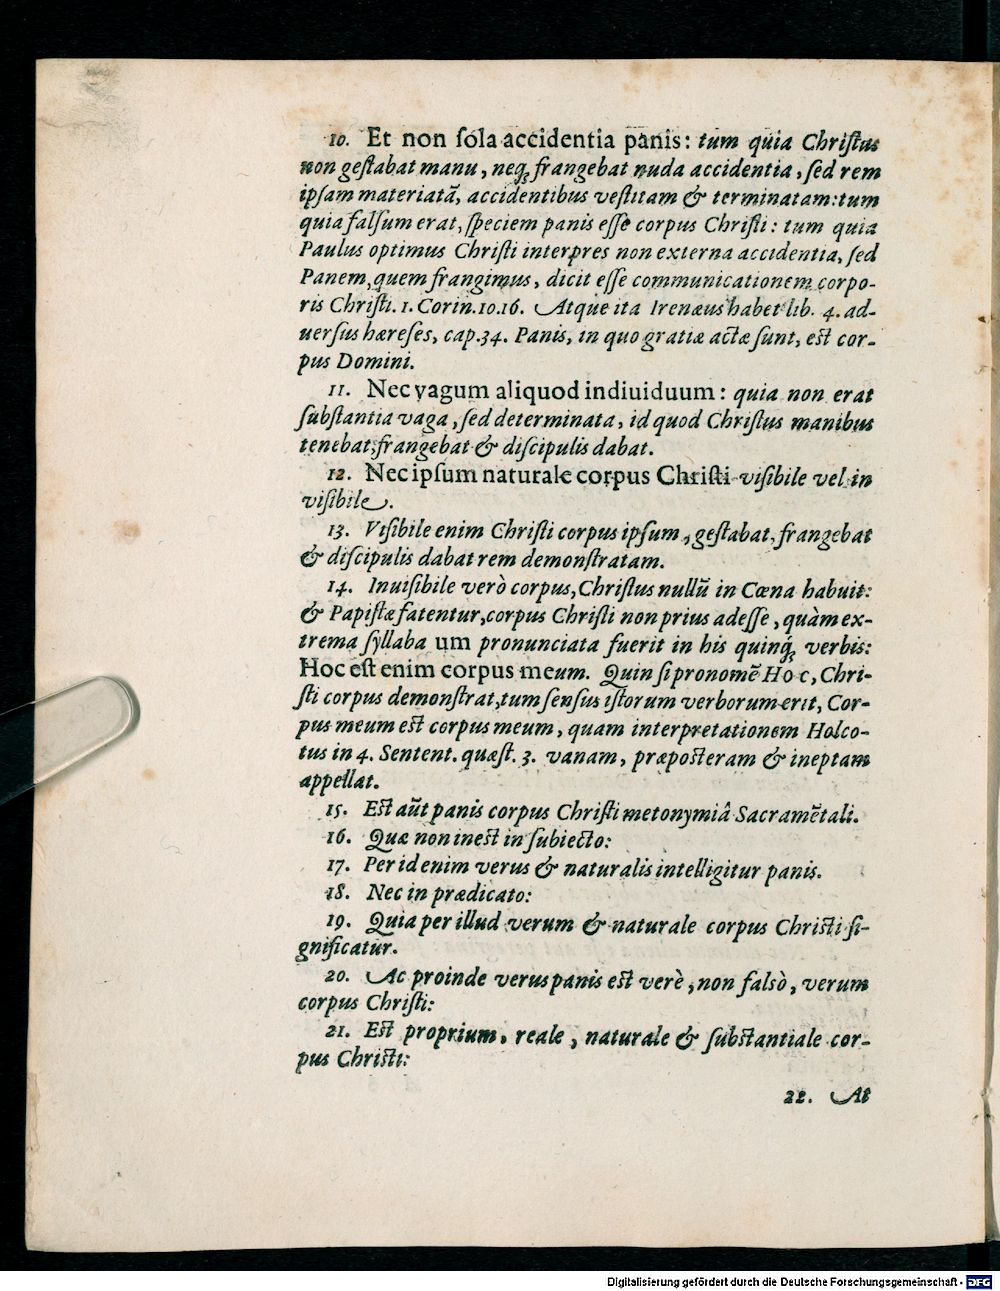 10. Et non ſola accidentia panis: tum quia Chriſtus
non geſtabat manu, neq; frangebat nuda accidentia, ſed rem
ipſam materiatã, accidentibus veſtitam & terminatam: tum
quia falſum erat, ſpeciem panis eſſe corpus Chriſti: tum quia
Paulus optimus Chriſti interpres non externa accidentia, ſed
Panem, quem frangimus, dicit eſſe communicationem corpo-
ris Chriſti. 1. Corin. 10.16. Atque ita Irenæus habet lib. 4. ad-
uerſus hæreſes, cap.34. Panis, in quo gratiæ actæ ſunt, eſt cor-
pus Domini.
11. Nec vagum aliquod indiuiduum: quia non erat
ſubſtantia vaga, ſed determinata, id quod Chriſtus manibus
tenebat, frangebat & diſcipulis dabat.
12. Nec ipſum naturale corpus Chriſti viſibile vel in
viſibile.
13. Viſibile enim Chriſti corpus ipſum, geſtabat, frangebat
& diſcipulis dabat rem demonſtratam.
14. Inuiſibile verò corpus, Chriſtus nullũ in Cœna habuit:
& Papiſtæ fatentur, corpus Chriſti non prius adeſſe, quàm ex-
trema ſyllaba um pronunciata fuerit in his quinq́; verbis:
Hoc eſt enim corpus meum. Quin ſi pronomẽ Hoc, Chri-
ſti corpus demonſtrat, tum ſenſus iſtorum verborum erit, Cor-
pus meum eſt corpus meum, quam interpretationem Holco-
tus in 4. Sentent. quæſt. 3. vanam, præpoſteram & ineptam
appellat.
15. Eſt aũt panis corpus Chriſti metonymiâ Sacramẽtali.
16. Quæ non ineſt in ſubiecto:
17. Per id enim verus & naturalis intelligitur panis.
18. Nec in prædicato:
19. Quia per illud verum & naturale corpus Chriſti ſi-
gnificatur.
20. Ac proinde verus panis eſt verè, non falsò, verum
corpus Chriſti:
21. Eſt proprium, reale, naturale & ſubſtantiale cor-
pus Chriſti:
22. At
Digitalisierung gefördert durch die Deutsche Forschungsgemeinschaft - DFG